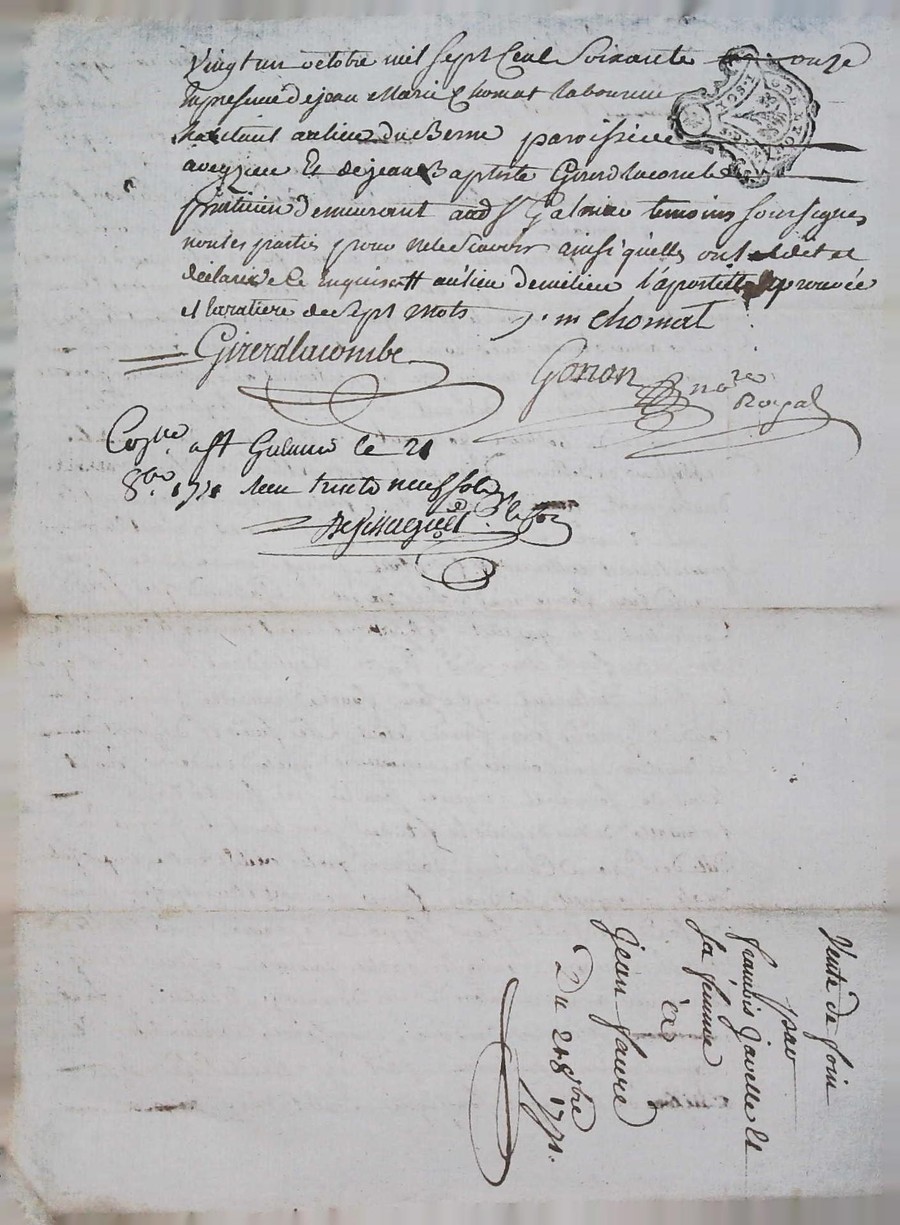 vingt un octobre mil sept Cent Soixante onze
En presence de jean Marie Chomat laboureur
habitant au lieu du Berne paroisse
aveyzieu Et de jean Baptiste Girerdlacombe
praticien demeurant aud St Galmier temoins soussignes
non les parties pour ne le Scavoir ainsi quelles ont dit et
declaré de ce enquis au lieu de milieu l'apostille aprouvée
et la rature de Sept mots j. m Chomat
Girerdlacombe
Gonon nore
Royal
Conlle a St Galmier le 21
8bre 1771 Reçu trente neuf sols
Vente de foin
par
francois Javelle et
sa femme
a
Jean faure
Du 21 8bre 1771.